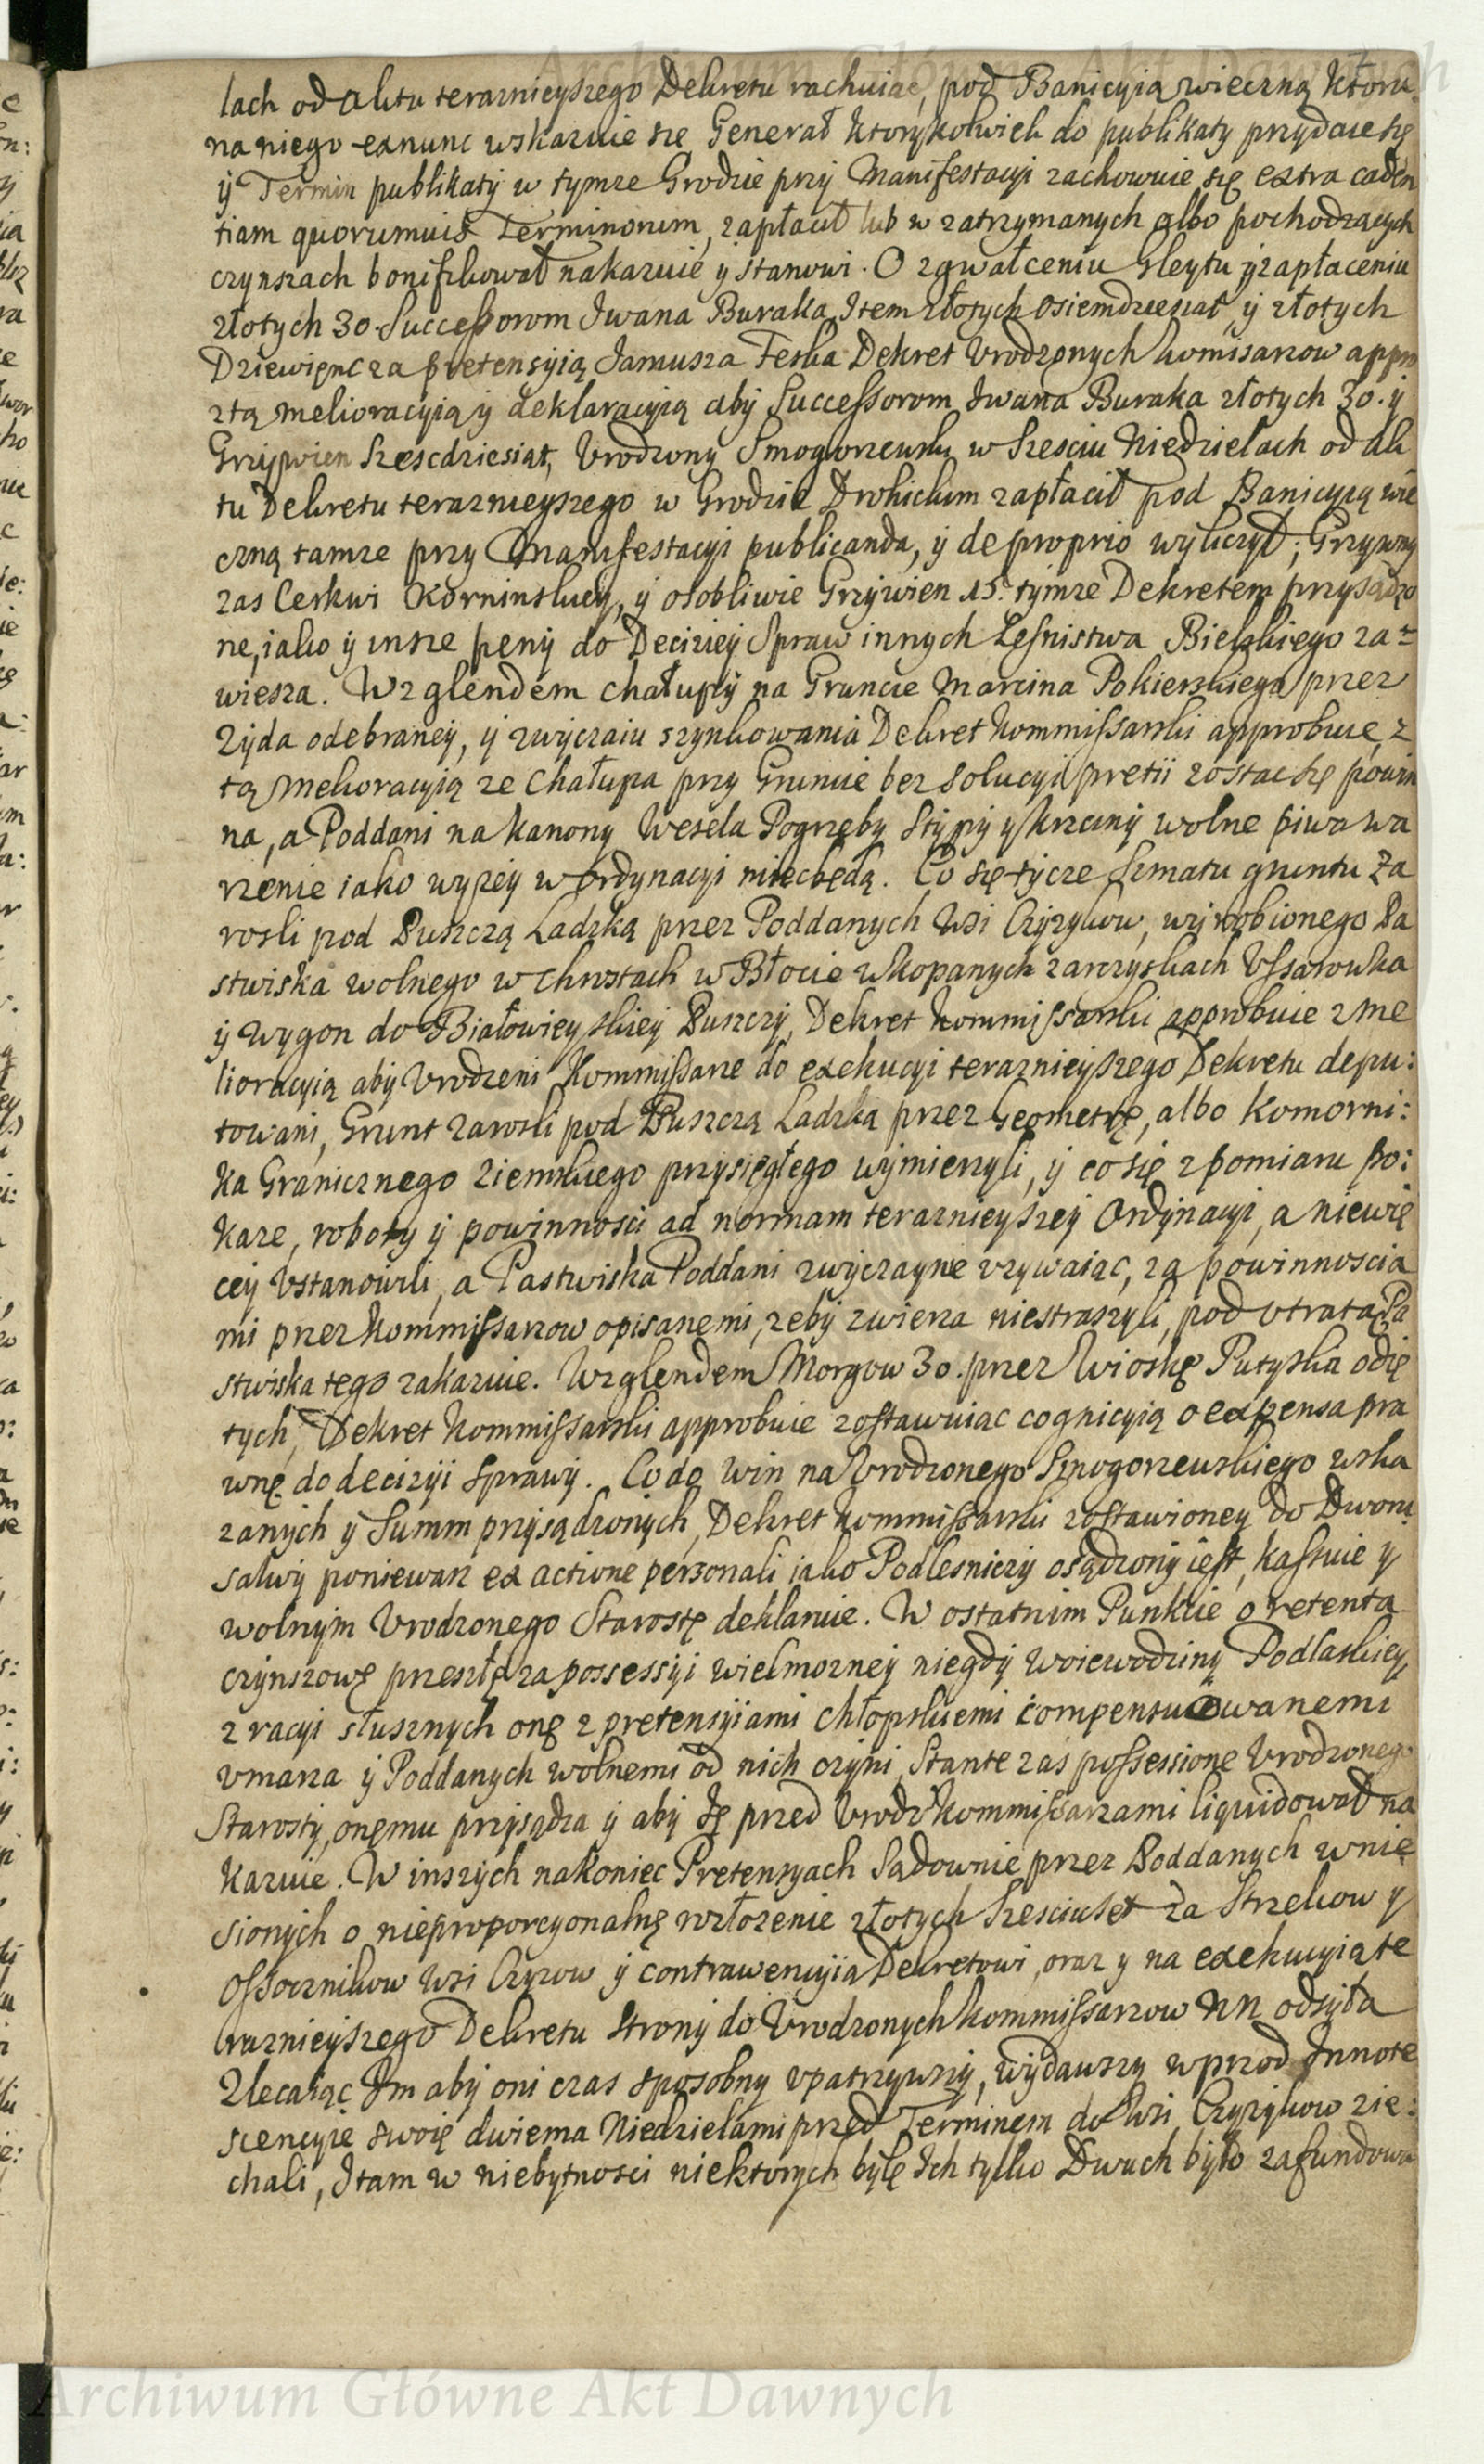 Archiwum Główne Akt Dawnych
lach od Aktu teraznieyszego Dekretu rachuiąc, pod Banicyią wieczną którą
na niego exnunc wskazuie się Generał ktorykolwiek do publikaty przydaie się
ÿ Termin publikaty w tymze Grodzie przÿ Manifestacyi zachowuie się extra caden
tiam quorumvis Terminorum, zapłacił lub w zatrzymanych albo pochodzących
czynszach bonifikował nakazuie ÿ stanowi. O zgwałceniu Gleytu ÿ zapłaceniu
złotych 30. Successorom Iwana Buraka, Item złotych osiemdziesiąt ÿ złotych
Dziewięnc za pretensyią Jamusza Feska Dekret Vrodzonych komissarzow appro
z tą melioracyią ÿ deklaracyią abÿ Successorom Iwana Buraka złotych 30. ÿ
Grzÿwien Szescdziesiąt, Vrodzony Smogorzewski w Szesciu Niedzielach od Ak
tu Dekretu teraznieyszego w Grodzie Drohickim zapłacił pod Banicyią wie
czną tamze przy Manifestacyi publicanda, ÿ de proprio wyliczył; Grzywny
zas Cerkwi Korninskiey, ÿ osobliwie Grzÿwien 15. tÿmze Dekretem przysądzo
ne, iako ÿ insze penÿ do Deciziey Spraw innych Lesnistwa Bielskiego za:
wiesza. Wzglendem chałupÿ na Gruncie Marcina Pokierskiego przez
Zÿda odebraneÿ, ÿ zwÿczaiu szynkowania Dekret Kommissarski approbuie, z
tą melioracyią ze Chałupa przy Gruncie bez solucyi pretii zostac się powin
na, a Poddani na kanony Wesela Pogrzeby Stÿpÿ y krzcinÿ wolne piwa wa
rzenie iako wyzeÿ w Ordynacyi miec będą. Co się tÿcze szmatu gruntu Za
rosli pod Puszczą Ladzką przez Poddanych Wsi Czyzykow, wÿrobionego Pa
stwiska wolnego w Chrostach w Błocie wkopanych zarczyskach Vssarowka
ÿ wygon do Białowieyskieÿ Puszczÿ, Dekret kommissarski approbuie z me
lioracyią abÿ Vrodzeni Kommissarze do exekucyi teraznieyszego Dekretu depu:
towani, Grunt zarosli pod Puszczą Ladzką przez Geometrę, albo Komorni:
ka Granicznego Ziemskiego przysięgłego wÿmierzyli, ÿ co się z pomiaru po:
kaze, roboty ÿ powinnosci ad normam teraznieyszeÿ Ordÿnacyi, a niewię
ceÿ Vstanowili, a Pastwiska Poddani zwÿczayne vzywaiąc, za powinnoscia
mi przez kommissarzow opisanemi, zebÿ zwierza niestraszyli, pod vtratą Pa
stwiska tego zakazuie. Wzglendem Morgow 30. przez Wioskę Putyska odię
tych, Dekret Kommissarski approbuie zostawuiąc cognicyią o expensa pra
wnę do decizÿi sprawÿ. Co do win na Vrodzonego Smogorzewskiego wska
zanych ÿ Summ przÿsądzonÿch, Dekret kommissarski zostawioneÿ do Dworu
salwÿ poniewaz ex actione personali iako Podlesniczÿ osądzonÿ iest, kassuie ÿ
wolnÿm Vrodzonego Starostę deklaruie. W ostatnim Punkcie o retenta
czÿnszowę przeszłę za possessÿi wielmozneÿ niegdÿ woiewodzinÿ Podlaskieÿ,
z racyi słusznych onę z pretensÿiami chłopskiemi compensuowanemi
vmarza ÿ Poddanych wolnemi od nich czÿni, Stante zas possessione Vrodzonego
Starostÿ, onemu przÿsądza ÿ abÿ Ię przed Vrodz kommissarzami liquidował na
kazuie. W inszÿch nakoniec Pretensyach Sądownie przez Poddanych wnie
sionÿch o nieproporcyonalnę wzłozenie złotych Szesciuset Za Strzelcow ÿ
Ossocznikow Wsi Czyzow ÿ contrawencyią Dekretowi, oraz y na exekucyią te
raznieyszego Dekretu Stronÿ do Vrodzonych kommissarzow NN odsÿła
Zlecaiąc Im abÿ oni czas sposobny vpatrzywszÿ, wÿdawszy wprzod Innote
scencyie swoię dwiema Niedzielami przed Terminem do Wsi Czyzykow zie:
chali, I tam w niebytnosci niektorych bÿlę Ich tylko Dwuch było zafundowa
Archiwum Główne Akt Dawnych